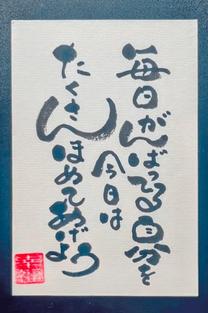 毎日がんばってる自分を
今日は
たくさん
ほめてあげよう